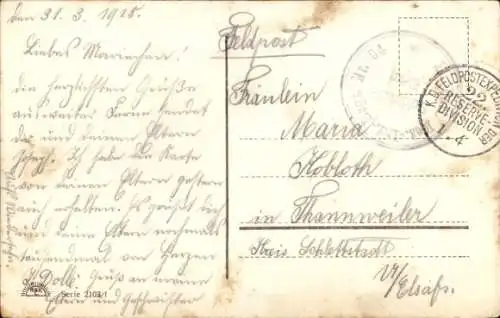 den 31. 3. 1918.
Liebes Mariechen!
die herzlichsten Grüße
aus weiter Ferne sendet
dir und deinen Eltern
Joseph. Ich habe die Karte
von deinen Eltern gestern
auch erhalten. Es grüßt dich
und deine Eltern nochmals
tausendmal von Herzen
J. Dolli Gruß an meine
Eltern und Geschwister
Serie 2103/1
Feldpost
Fräulein
Maria
Kobloth
in Thannweiler
Kreis Schlettstadt
i/Elsaß.
K.D. FELDPOSTEXP.
22.
RESERVE-
DIVISION